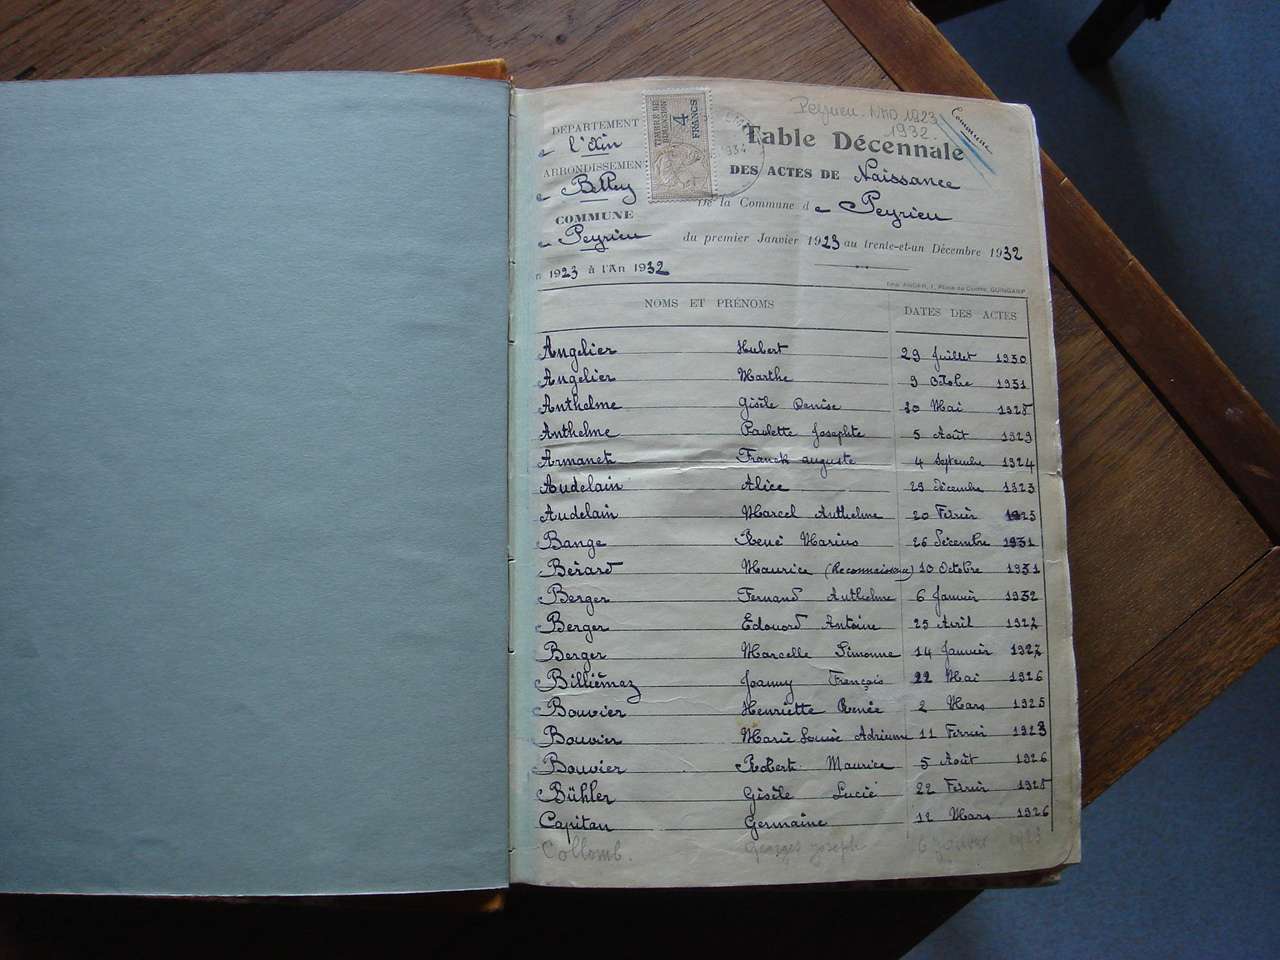 Peyrieu NMD 1923
1932.
Commune
DÉPARTEMENT
de l'Ain
ARRONDISSEMENT
de Belley
COMMUNE
de Peyrieu
1923 à l'An 1932
TIMBRE DE DIMENSION
4 FRANCS
934
Table Décennale
DES ACTES DE Naissance
De la Commune de Peyrieu
du premier Janvier 1923 au trente-et-un Décembre 1932
GUINGAMP
NOMS ET PRÉNOMS DATES DES ACTES
Angelier Hubert 29 Juillet 1930
Angelier Marthe 9 Octobre 1931
Anthelme Gisèle Denise 30 Mai 1928
Anthelme Paulette Josephte 5 Août 1929
Armanet Franck auguste 4 Septembre 1924
Audelain Alice 29 Décembre 1923
Audelain Marcel Anthelme 20 Février 1925
Bange René Marius 26 Décembre 1931
Bérard Maurice (Reconnaissance) 10 Octobre 1931
Berger Fernand Anthelme 6 Janvier 1932
Berger Edouard Antoine 25 Avril 1927
Berger Marcelle Simonne 14 Janvier 1927
Billiémaz Joanny François 22 Mai 1926
Bouvier Henriette Renée 2 Mars 1925
Bouvier Marie Louise Adrienne 11 Février 1923
Bouvier Robert Maurice 5 Août 1926
Bühler Gisèle Lucie 22 Février 1928
Capitan Germaine 12 Mars 1926
Collomb. Georges Joseph 6 Janvier 1923